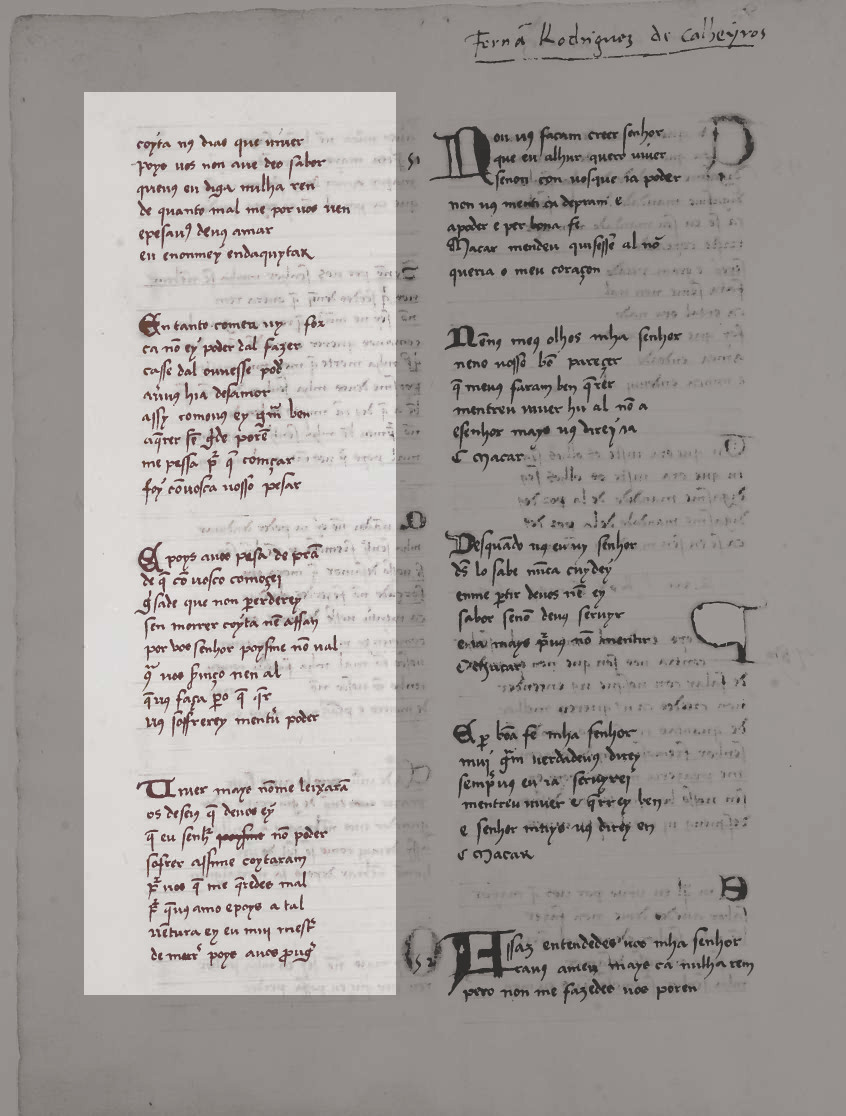 Fernã Rodriguez de Calheyros
coyta nŋ dias que uiuer
Poys uos non aue des sabor
queuꝯ eu diga nulha ren
de quanto mal me por uos uen
epesauꝯ deuꝯ amar
eu enonmey endaquytar
En tanto comeu uy for
ca nõ ey poder dal fazer
casse dal ouuesse pod̃
desamor
assy comouꝯ ey ben
me pessa p̃ q̃ começar
foy cõuosca uosso pesar
E poys auos pesa de
de q̃ cõ uosco começei
g̃sade que non perderey
sen morrer coyta nẽ affan
por uos senhor poysme nõ ual
uos nen al
q̃uꝯ faça p̱o q̃ q̃r
uꝯ soffrerey poder
Uiuer mays nõme leixarã
os deseiꝯ q̃ deuos ey
q̃ eu senhr̃ nõ poder
sofrer assyme coytaram
p̃ uos q̃ me q̃redes mal
p̃ q̃uꝯ amo epoys a tal
uentura ey eu mui
de poys auos
51
Non uꝯ facam creer senhor
que eu alhur quero uiuer
senon con uosque ia poder
non uꝯ e
apoder e per bona fe
Macar mendeu quisesse al nõ
queria o meu coraçon
Nẽuꝯ meuꝯ olhos mha senhor
neno uosso bẽ pareçer
q̃ meuꝯ faram ben q̃rer
mentreu uiuer hu al nõ a
esenhor mays uꝯ direy ia
C Macar
Desquãdo uꝯ eu uy senhor
ds̃ lo sabe nũca cuydey
enme p̱tir deuos nẽ ey
sabor senõ deuꝯ seruyr
e ia mays p̃uꝯ nõ mentir
C Macar
E p̱ bõa fe mha senhor
mui uerdadeuꝯ direy
semp̃uꝯ eu ia seruyrei
mentreu uiuer e q̃rrey ben
e senhor uꝯ direy en
C Macar
52
Assaz entendedes uos mha senhor
cauꝯ ameu mays ca nulha rem
pero non me fazedes uos poren